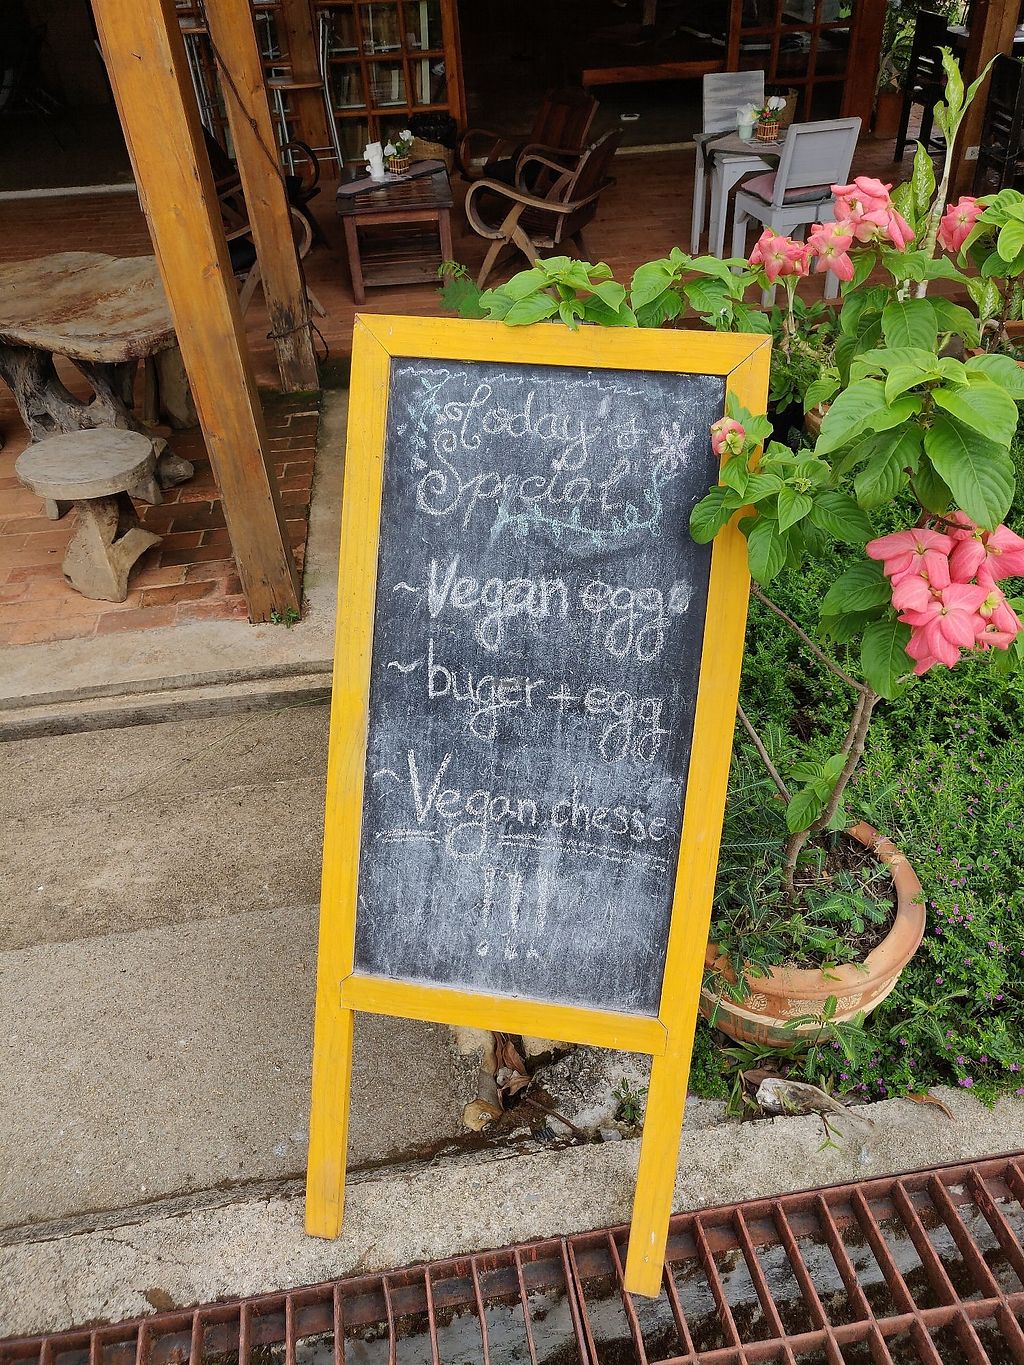 Today's
Special
~Vegan egg
~buger + egg
~Vegan chesse
!!!